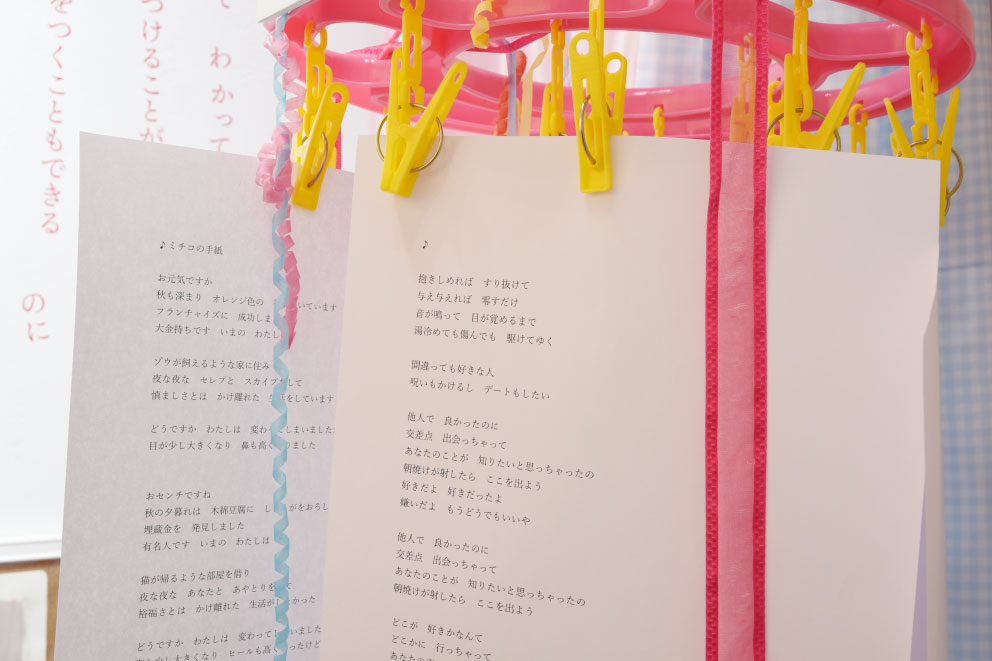 わかって
つけることが
をつくこともできる
のに
♪ミチコの手紙
お元気ですか
秋も深まり　オレンジ色の　いています
フランチャイズに　成功しま
大金持ちです　いまの　わたし
ゾウが飼えるような家に住み
夜な夜な　セレブと　スカイプ　して
慎ましさとは　かけ離れた　生活をしています
どうですか　わたしは　変わってしまいました
目が少し大きくなり　鼻も高くなりました
おセンチですね
秋の夕暮れは　木綿豆腐に　し　がをおろし
埋蔵金を　発見しました
有名人です　いまの　わたしは
猫が帰るような部屋を借り
夜な夜な　あなたと　あやとりを　て
裕福さとは　かけ離れた　生活が　たかった
どうですか　わたしは　変わってしまいました
少し大きくなり　ヒールも高く　ったけど
♪
抱きしめれば　すり抜けて
与え与えれば　零すだけ
音が鳴って　目が覚めるまで
湯冷めても傷んでも　駆けてゆく
間違っても好きな人
呪いもかけるし　デートもしたい
他人で　良かったのに
交差点　出会っちゃって
あなたのことが　知りたいと思っちゃったの
朝焼けが射したら　ここを出よう
好きだよ　好きだったよ
嫌いだよ　もうどうでもいいや
他人で　良かったのに
交差点　出会っちゃって
あなたのことが　知りたいと思っちゃったの
朝焼けが射したら　ここを出よう
どこが　好きかなんて
どこかに　行っちゃって